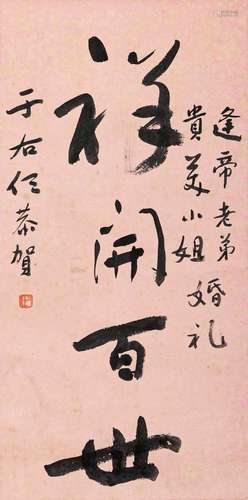 逢帝老弟
貴美小姐婚礼
祥開百世
于右任恭賀